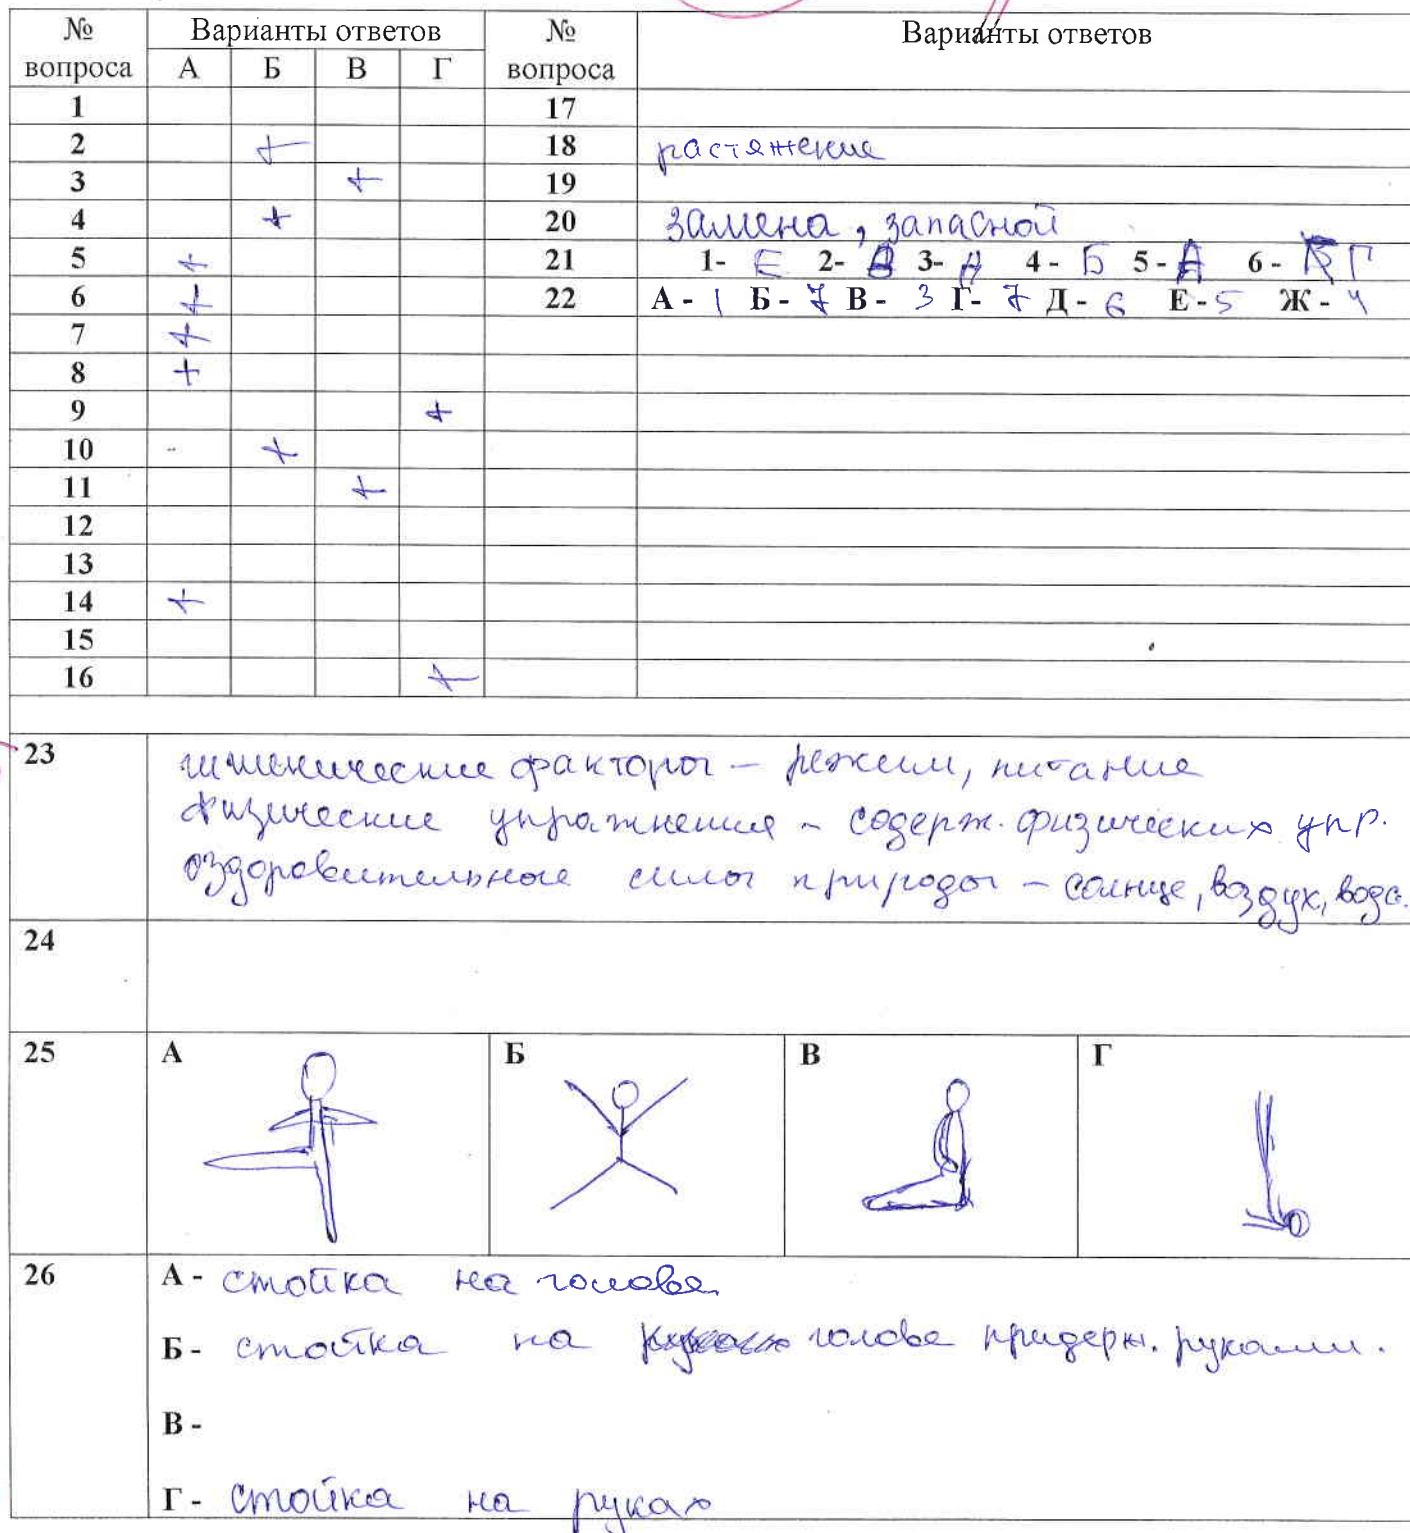 № вопроса Варианты ответов № вопроса Варианты ответов
А Б В Г
1 17
2 + 18 растяжение
3 + 19
4 + 20 замена, запасной
5 + 21 1- Е 2- 3- А 4 - Б 5 - А 6 - Г
6 + 22 А - 1 Б - 7 В - 3 Г- 7 Д - 6 Е - 5 Ж - 4
7 +
8 +
9 +
10 +
11 +
12
13
14 +
15
16 +
23 гигиенические факторы – режим, питание
физические упражнения - содерж. физических упр.
оздоровительные силы природы – солнце, воздух, вода.
24
25 А Б В Г
26 А - стойка на голове
Б - стойка на голове придерж. руками.
В -
Г - стойка на руках